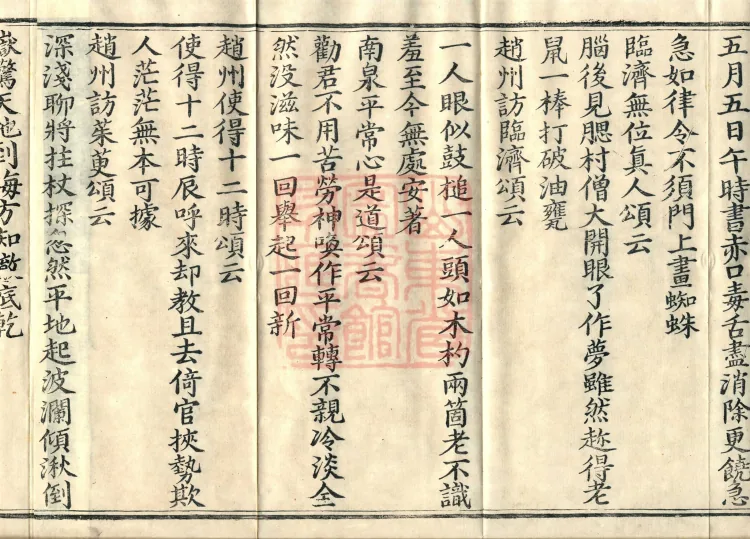 五月五日午時書赤口毒舌盡消除更饒急
急如律令不須門上畫蜘蛛
臨濟無位真人頌云
腦後見腮村僧大開眼了作夢雖然趂得老
鼠一棒打破油甕
趙州訪臨濟頌云
一人眼似鼓槌一人頭如木杓兩箇老不識
羞至今無處安著
南泉平常心是道頌云
勸君不用苦勞神喚作平常轉不親冷淡全
然没滋味一回舉起一回新
趙州使得十二時頌云
使得十二時辰呼來却教且去倚官挾勢欺
人茫茫無本可據
趙州訪茱萸頌云
深淺聊將拄杖探忽然平地起波瀾傾湫倒
嶽驚天地到海方知徹底乾